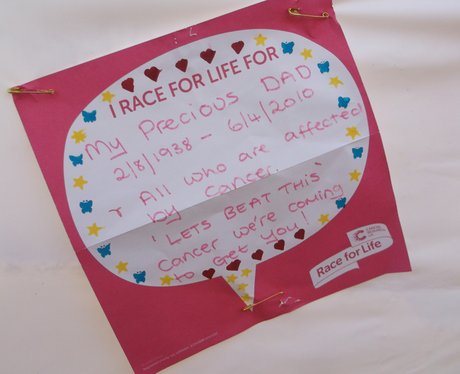 I RACE FOR LIFE FOR
My Precious DAD
2/8/1938 - 6/4/2010
+ All who are affected
by cancer.
'LETS BEAT THIS'
cancer we're coming
to Get You!
CANCER RESEARCH UK
Race for Life